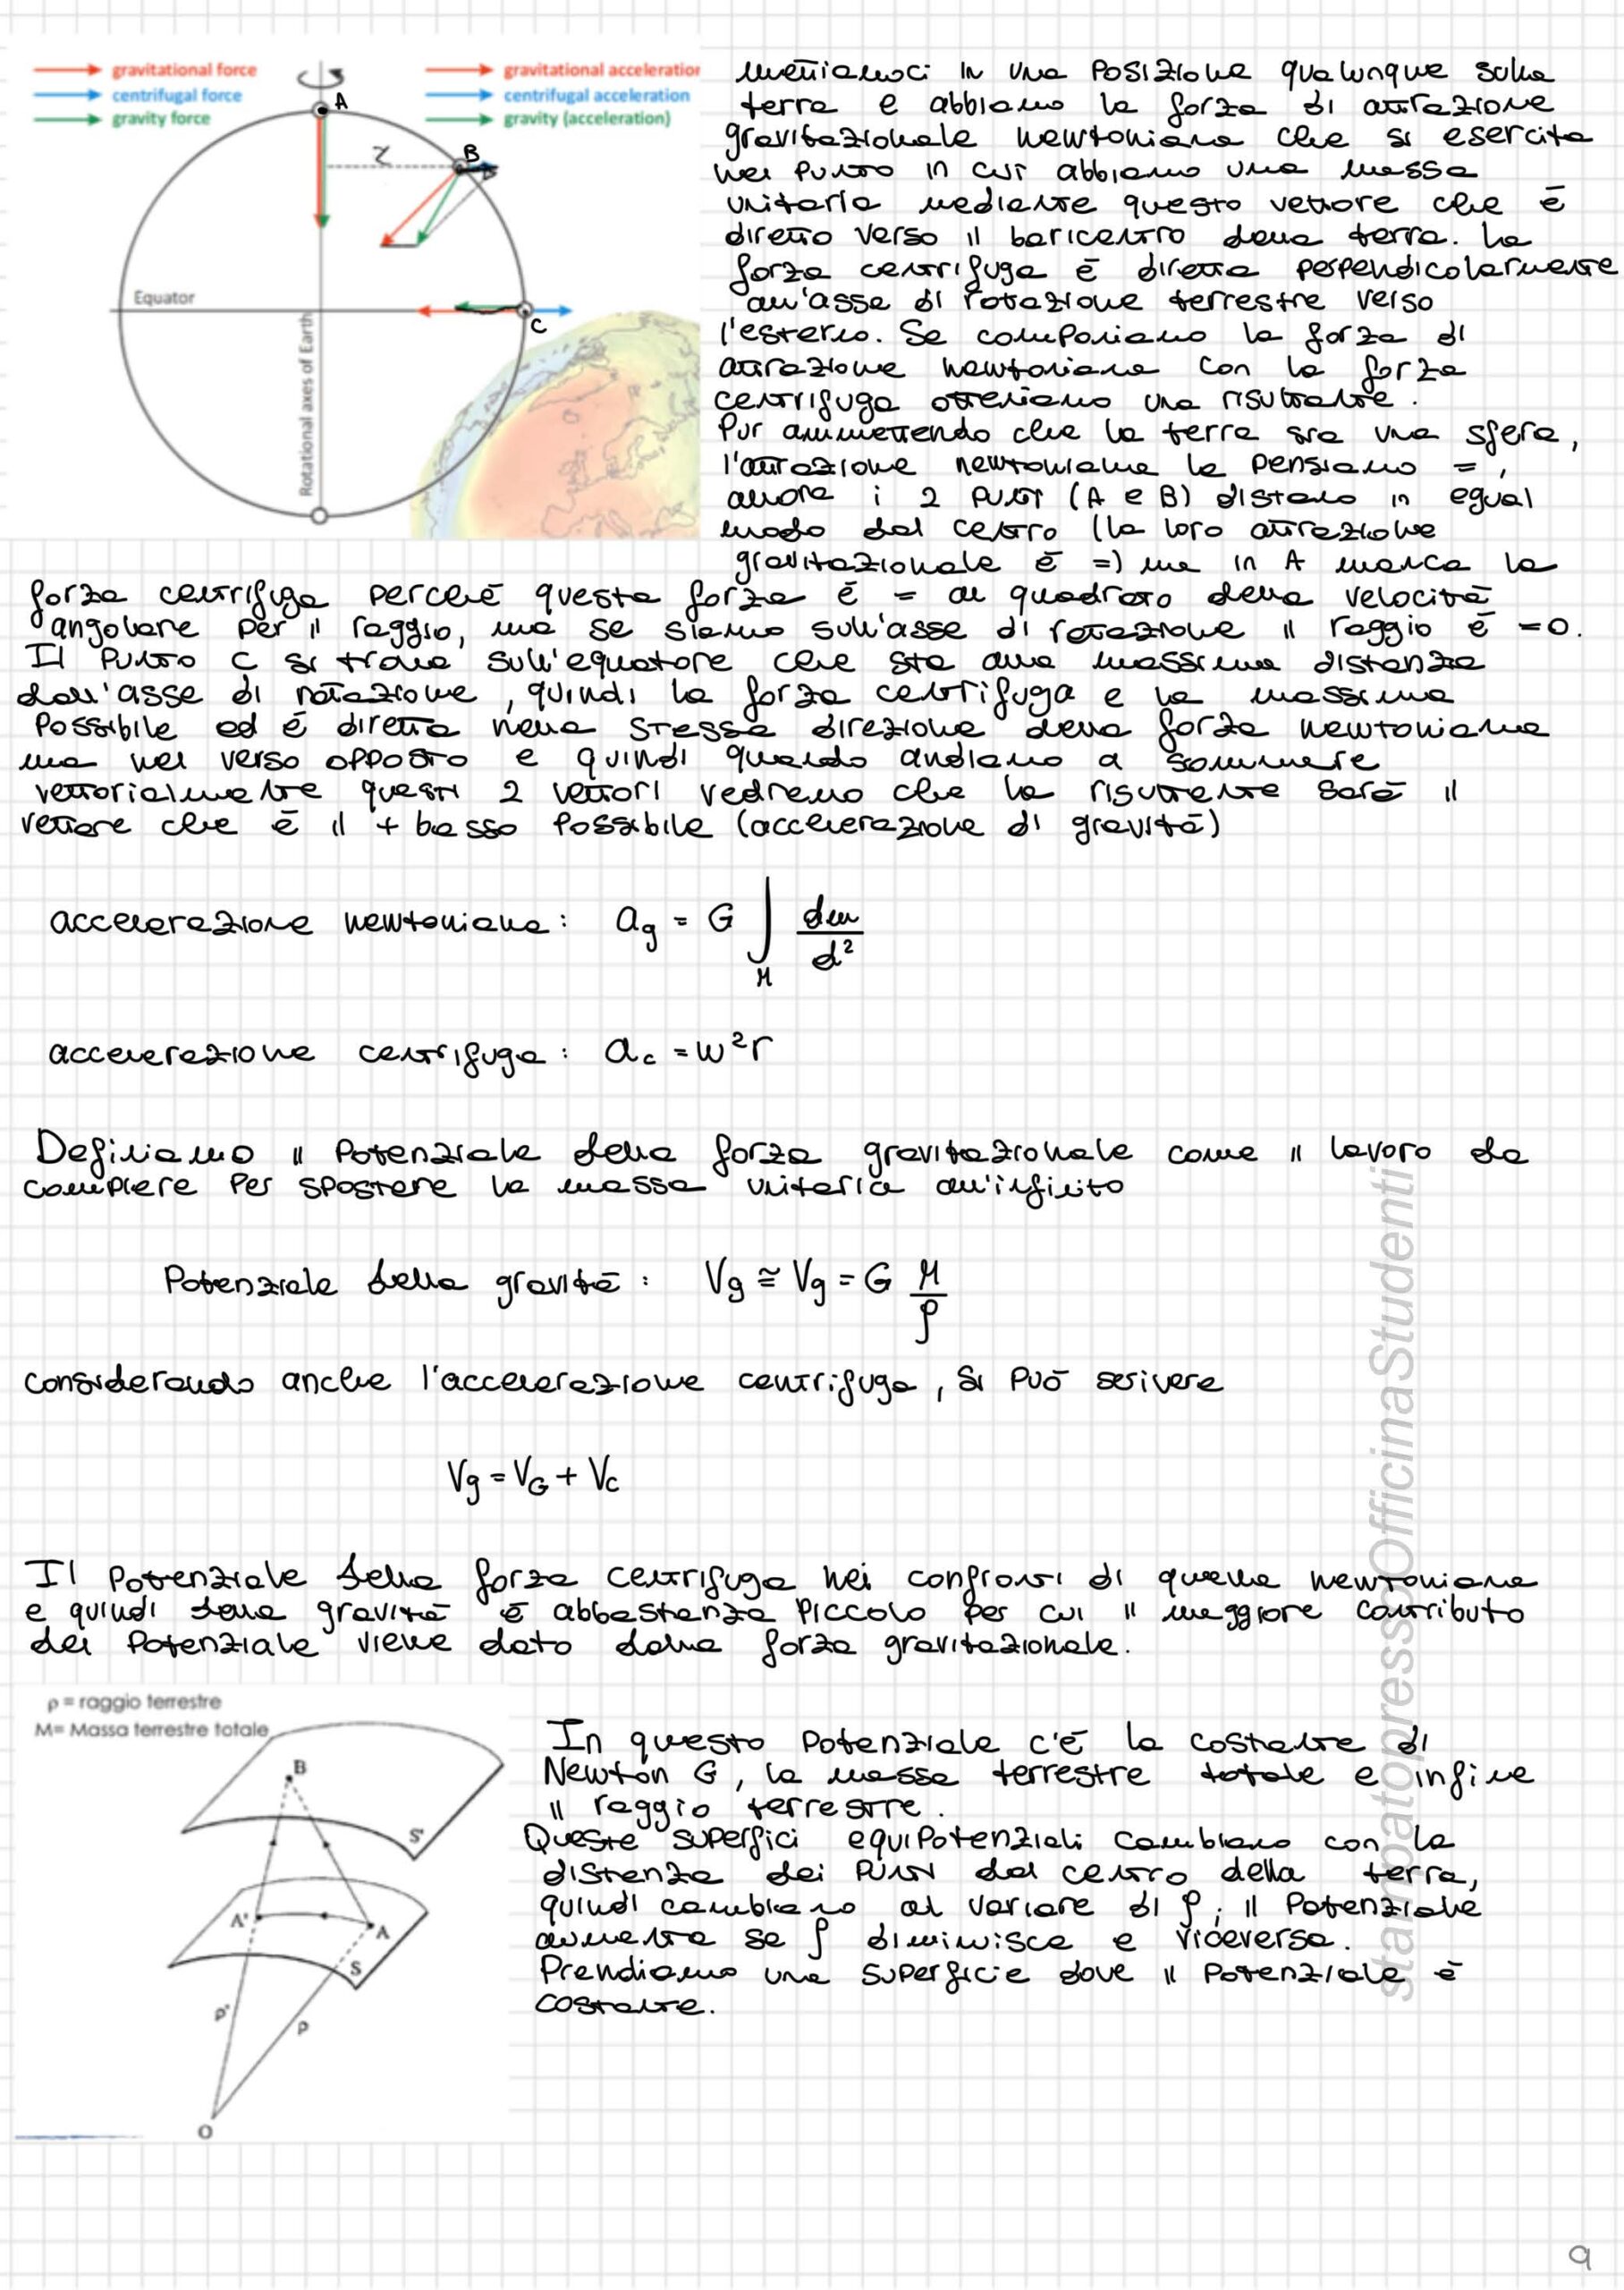 gravitational force
centrifugal force
gravity force
gravitational acceleration
centrifugal acceleration
gravity (acceleration)
A
r
B
Equator
C
Rotational axes of Earth
mettiamoci in una posizione qualunque sulla
terra e abbiamo la forza di attrazione
gravitazionale newtoniana che si esercita
nel punto in cui abbiamo una massa
unitaria mediante questo vettore che è
diretto verso il baricentro della terra. La
forza centrifuga è diretta perpendicolarmente
all'asse di rotazione terrestre verso
l'esterno. Se componiamo la forza di
attrazione newtoniana con la forza
centrifuga otteniamo una risultante.
Pur ammettendo che la terra sia una sfera,
l'attrazione newtoniana la pensiamo =,
allora i 2 punti (A e B) distano in egual
modo dal centro (la loro attrazione
gravitazionale è =) ma in A manca la
forza centrifuga perché questa forza è = al quadrato della velocità
angolare per il raggio, ma se siamo sull'asse di rotazione il raggio è =0.
Il punto C si trova sull'equatore che sta alla massima distanza
dall'asse di rotazione, quindi la forza centrifuga e la massima
possibile ed è diretta nella stessa direzione della forza newtoniana
ma nel verso opposto e quindi quando andiamo a sommare
vettorialmente questi 2 vettori vedremo che la risultante sarà il
vettore che è il + basso possibile (accelerazione di gravità)
accelerazione newtoniana: ag = G ∫M dm/d²
accelerazione centrifuga: ac = w²r
Definiamo il potenziale della forza gravitazionale come il lavoro da
compiere per spostare la massa unitaria all'infinito
Potenziale della gravità: Vg ≅ Vg = G M/ρ
considerando anche l'accelerazione centrifuga, si può scrivere
Vg = VG + Vc
Il potenziale della forza centrifuga nei confronti di quella newtoniana
e quindi della gravità è abbastanza piccolo per cui il maggiore contributo
del potenziale viene dato dalla forza gravitazionale.
ρ = raggio terrestre
M= Massa terrestre totale
B
S'
A'
A
S
ρ'
ρ
O
In questo potenziale c'è la costante di
Newton G, la massa terrestre totale e infine
il raggio terrestre.
Queste superfici equipotenziali cambiano con la
distanza dei punti dal centro della terra,
quindi cambiano al variare di ρ; il potenziale
aumenta se ρ diminuisce e viceversa.
Prendiamo una superficie dove il potenziale è
costante.
stampatopressoOfficinaStudenti
9